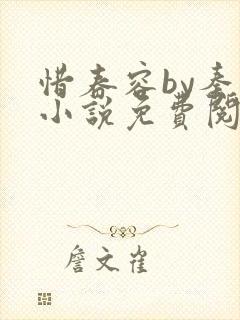 惜春容by秦
小說免費閱
詹文雀